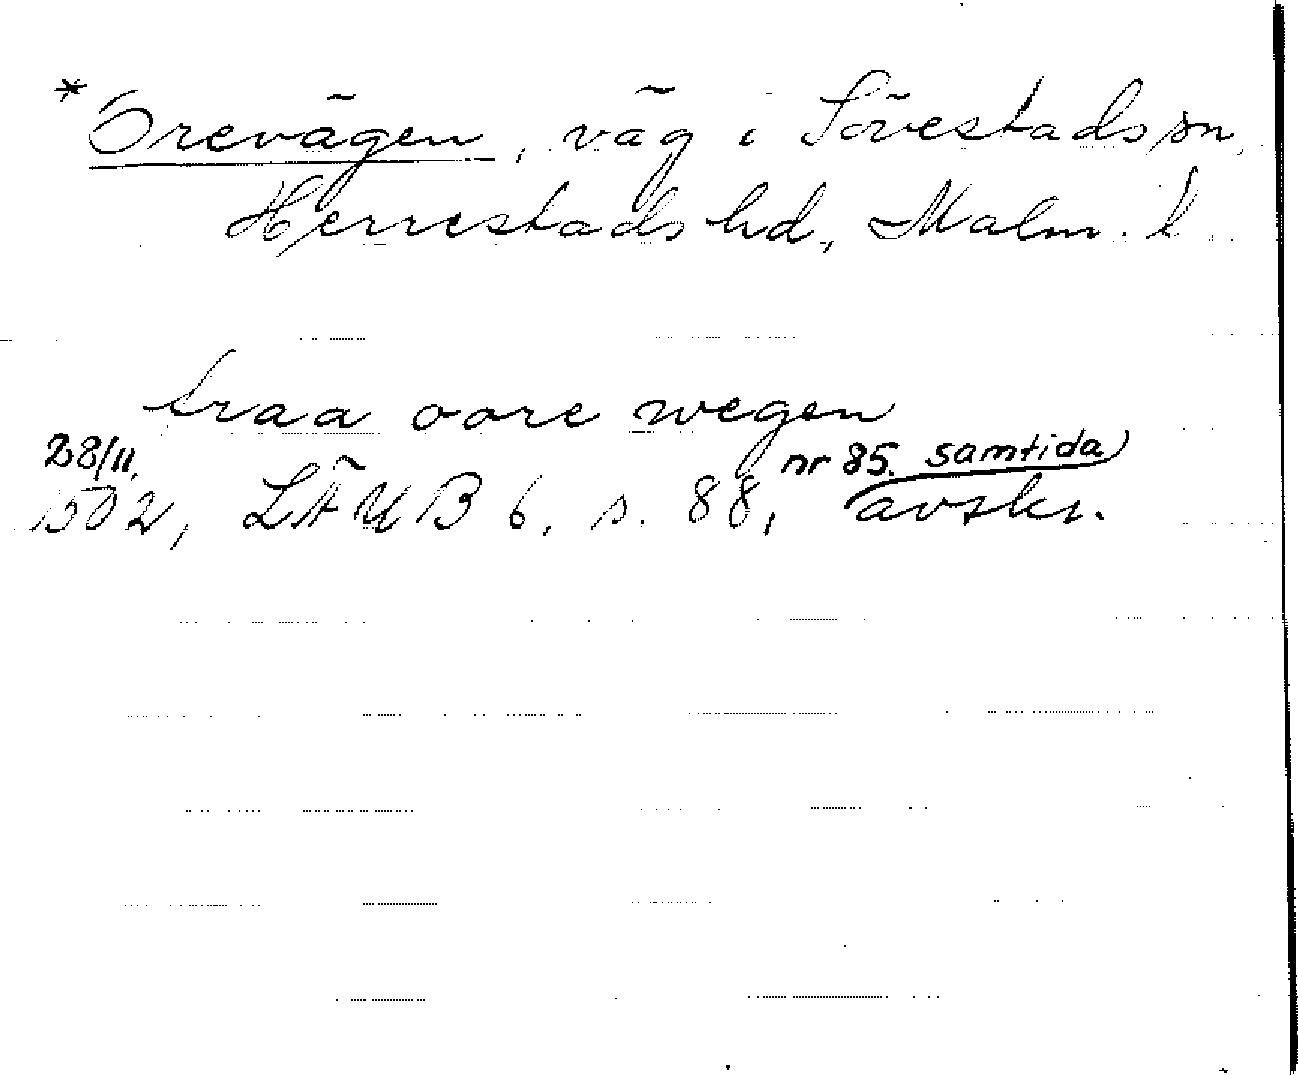 *Örevägen, väg i Sövestads sn,
Herrestads hd, Malm. l.
traa oore wegen
28/11.
1502, LÄUB 6, s. 88, nr 85. samtida
avskr.